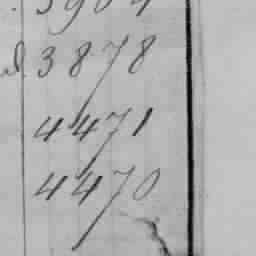 3878
4471
4470